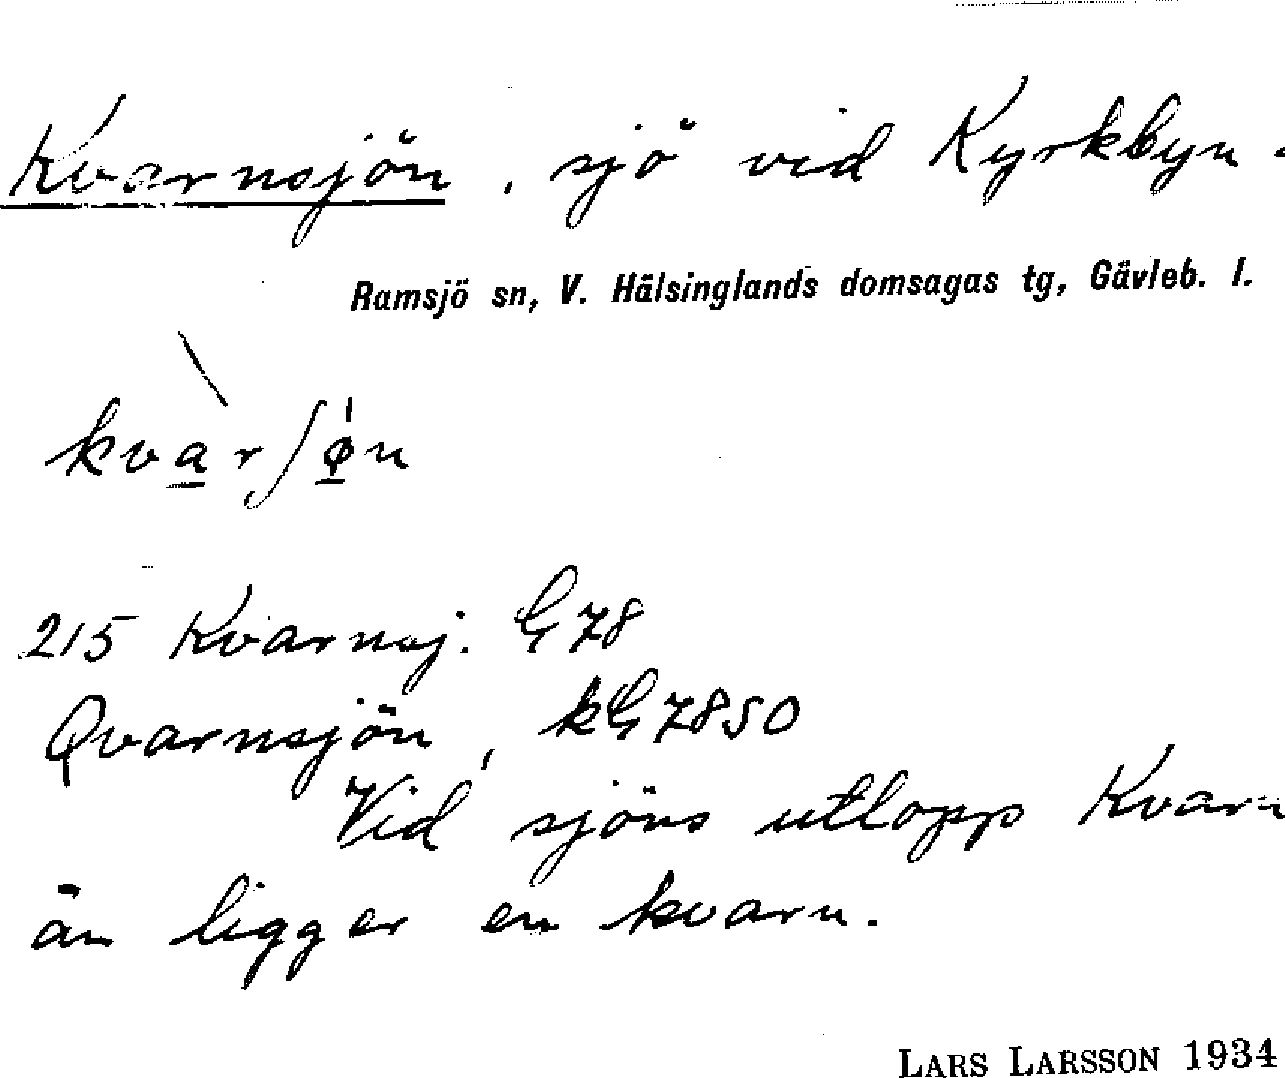 Kvarnsjön, sjö vid Kyrkbyn.
Ramsjö sn, V. Hälsinglands domsagas tg, Gävleb. l.
kvàrʃǿn
215 Kvarnsj. G78
Qvarnsjön, kG7850
Vid sjöns utlopp Kvarn
ån ligger en kvarn.
LARS LARSSON 1934